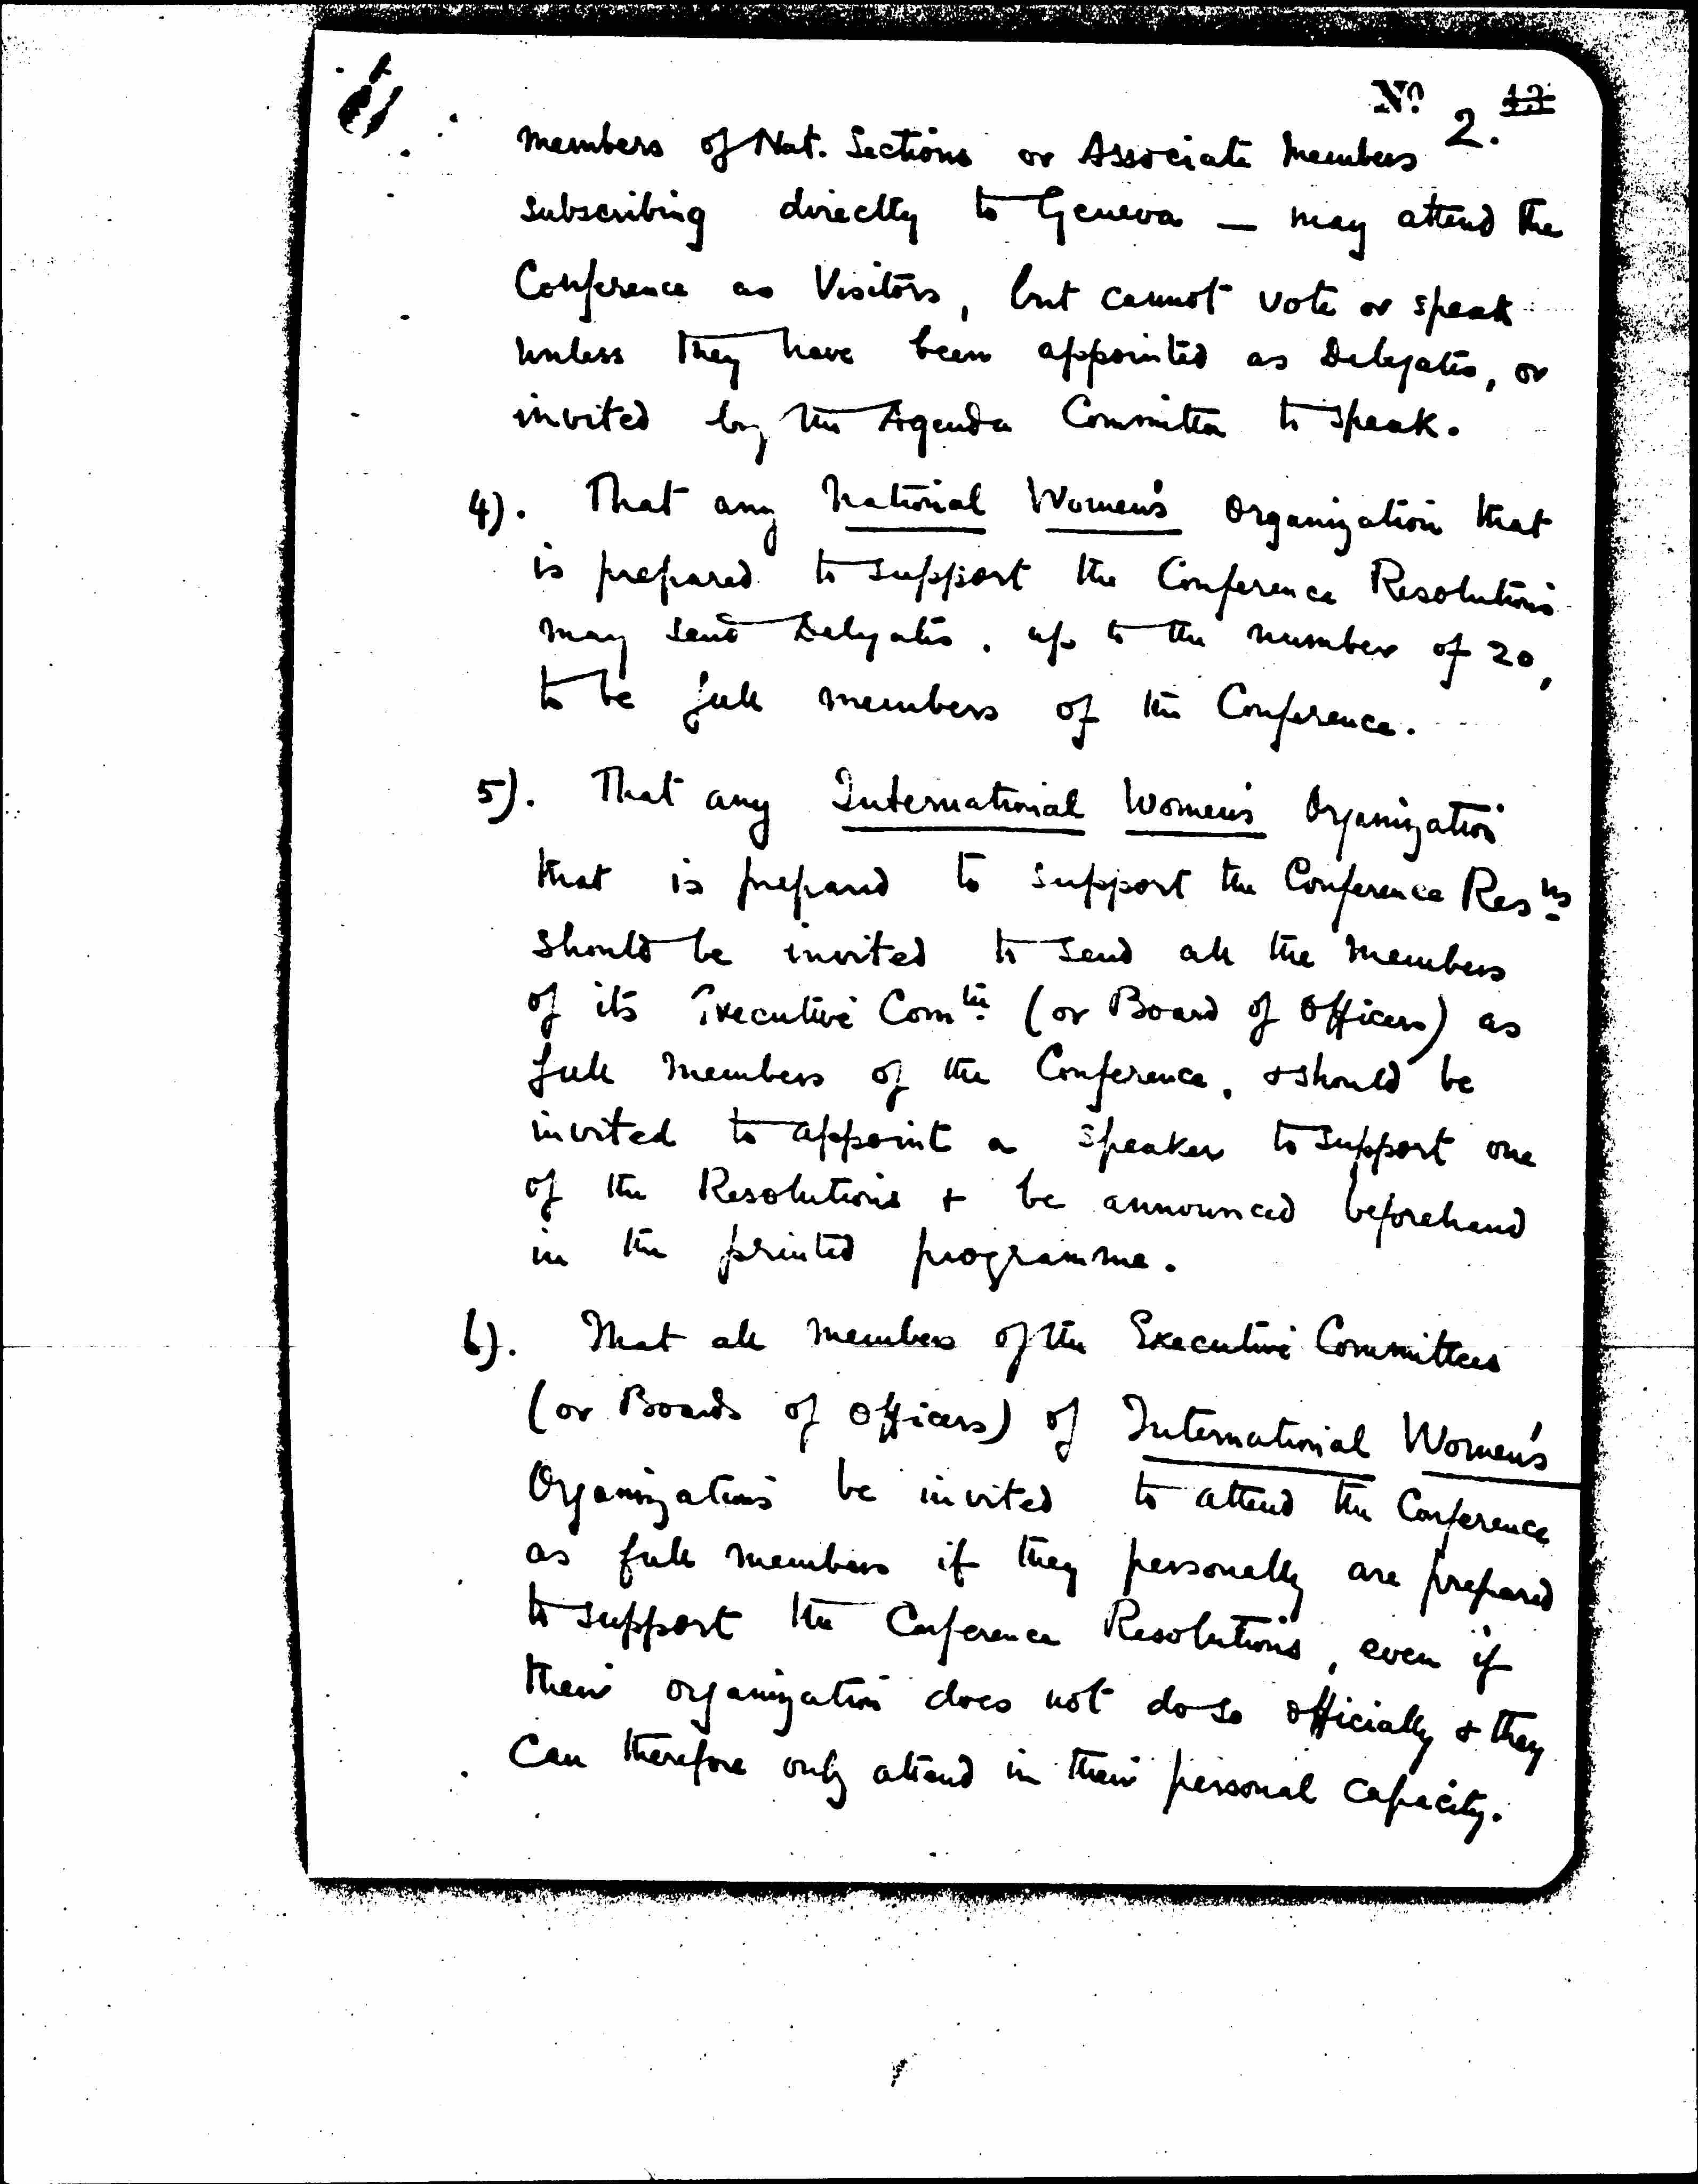 Nº 2. 13
members of Nat. Sections or Associate Members
subscribing directly to Geneva — may attend the
Conference as Visitors, but cannot vote or speak
unless they have been appointed as Delegates, or
invited by the Agenda Committee to speak.
4). That any National Women's Organization that
is prepared to support the Conference Resolutions
may send Delegates, up to the number of 20,
to be full members of the Conference.
5). That any International Women's Organization
that is prepared to support the Conference Resns
should be invited to send all the members
of its Executive Comtee (or Board of Officers) as
full members of the Conference, & should be
invited to appoint a speaker to support one
of the Resolutions & be announced beforehand
in the printed programme.
6). That all members of the Executive Committees
(or Boards of Officers) of International Women's
Organizations be invited to attend the Conference
as full members if they personally are prepared
to support the Conference Resolutions, even if
their organization does not do so officially & they
can therefore only attend in their personal capacity.